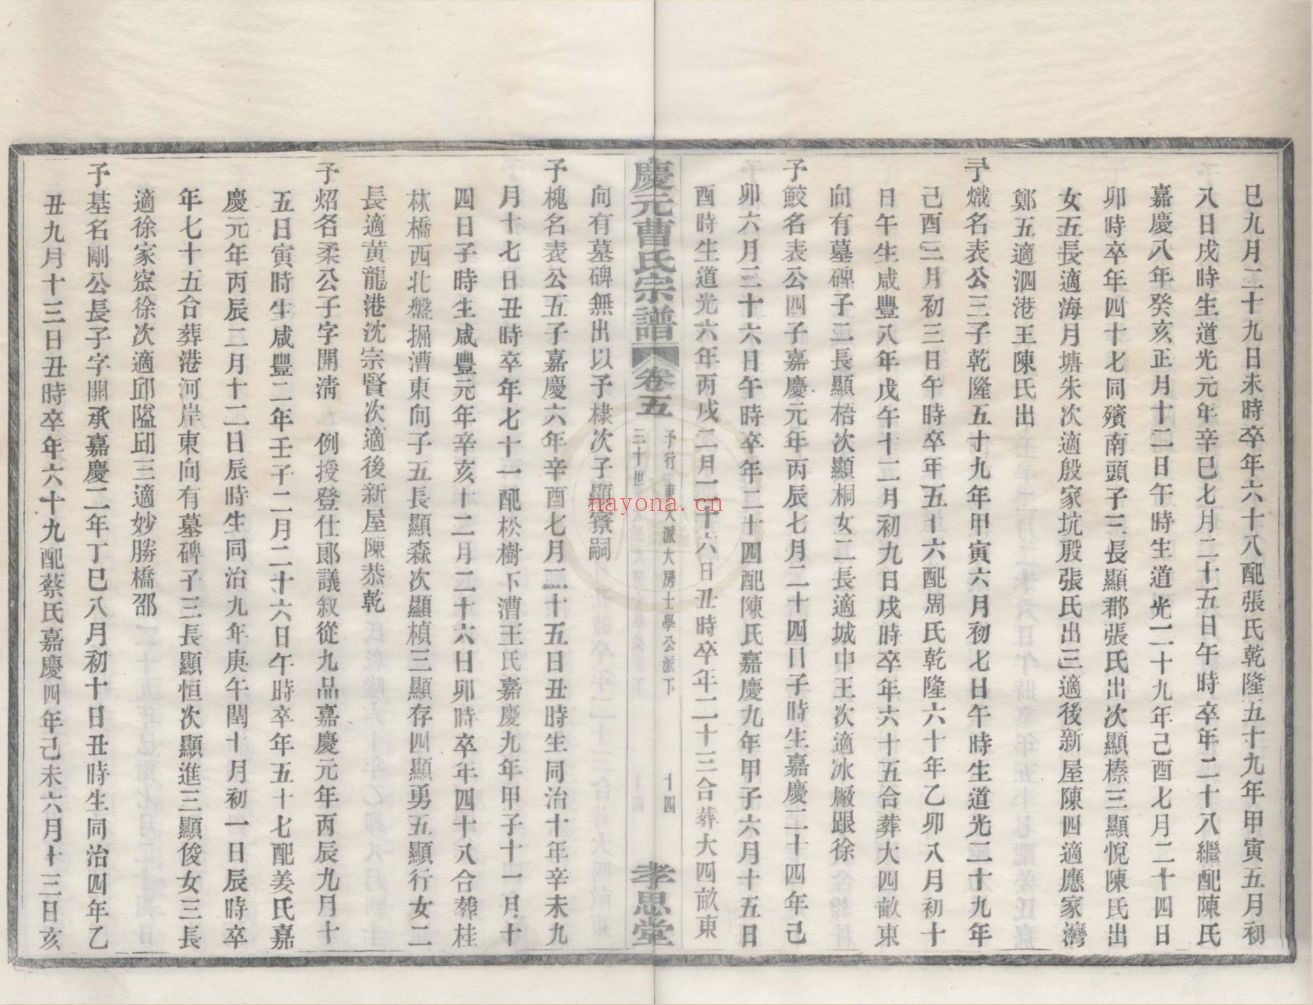 巳九月二十九日未時卒年六十八配張氏乾隆五十九年甲寅五月初
八日戌時生道光元年辛巳七月二十五日午時卒年二十八繼配陳氏
嘉慶八年癸亥正月十二日午時生道光二十九年己酉七月二十四日
卯時卒年四十七同殯南頭子三長顯郡張氏出次顯榛三顯悅陳氏出
女五長適海月塘朱次適殷家坑殷張氏出三適後新屋陳四適應家灣
鄭五適泗港王陳氏出
予熾名表公三子乾隆五十九年甲寅六月初七日午時生道光二十九年
己酉三月初三日午時卒年五十六配周氏乾隆六十年乙卯八月初十
日午生咸豐八年戊午十二月初九日戌時卒年六十五合葬大四畝東
向有墓碑子二長顯梧次顯桐女二長適城中王次適冰廠跟徐
予鮫名表公四子嘉慶元年丙辰七月二十四日子時生嘉慶二十四年己
卯六月二十六日午時卒年二十四配陳氏嘉慶九年甲子六月十五日
酉時生道光六年丙戌二月二十六日丑時卒年二十三合葬大四畝東
慶元曹氏宗譜
卷五
予行 東大派大房士學公派下
三十世
十四
孝思堂
向有墓碑無出以予棣次子顯寮嗣
予槐名表公五子嘉慶六年辛酉七月二十五日丑時生同治十年辛未九
月十七日丑時卒年七十一配松樹下漕王氏嘉慶九年甲子十一月十
四日子時生咸豐元年辛亥十二月二十六日卯時卒年四十八合葬桂
林橋西北盤掘漕東向子五長顯森次顯楨三顯存四顯勇五顯行女二
長適黃龍港沈宗賢次適後新屋陳恭乾
予炤名柔公子字開淸 例授登仕郞議叙從九品嘉慶元年丙辰九月十
五日寅時生咸豐二年壬子二月二十六日午時卒年五十七配姜氏嘉
慶元年丙辰二月十二日辰時生同治九年庚午閏十月初一日辰時卒
年七十五合葬港河岸東向有墓碑子三長顯恒次顯進三顯俊女三長
適徐家寮徐次適邱隘邱三適妙勝橋邵
予基名剛公長子字開承嘉慶二年丁巳八月初十日丑時生同治四年乙
丑九月十三日丑時卒年六十九配蔡氏嘉慶四年己未六月十三日亥
nayona.cn